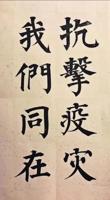 抗擊疫灾
我們同在